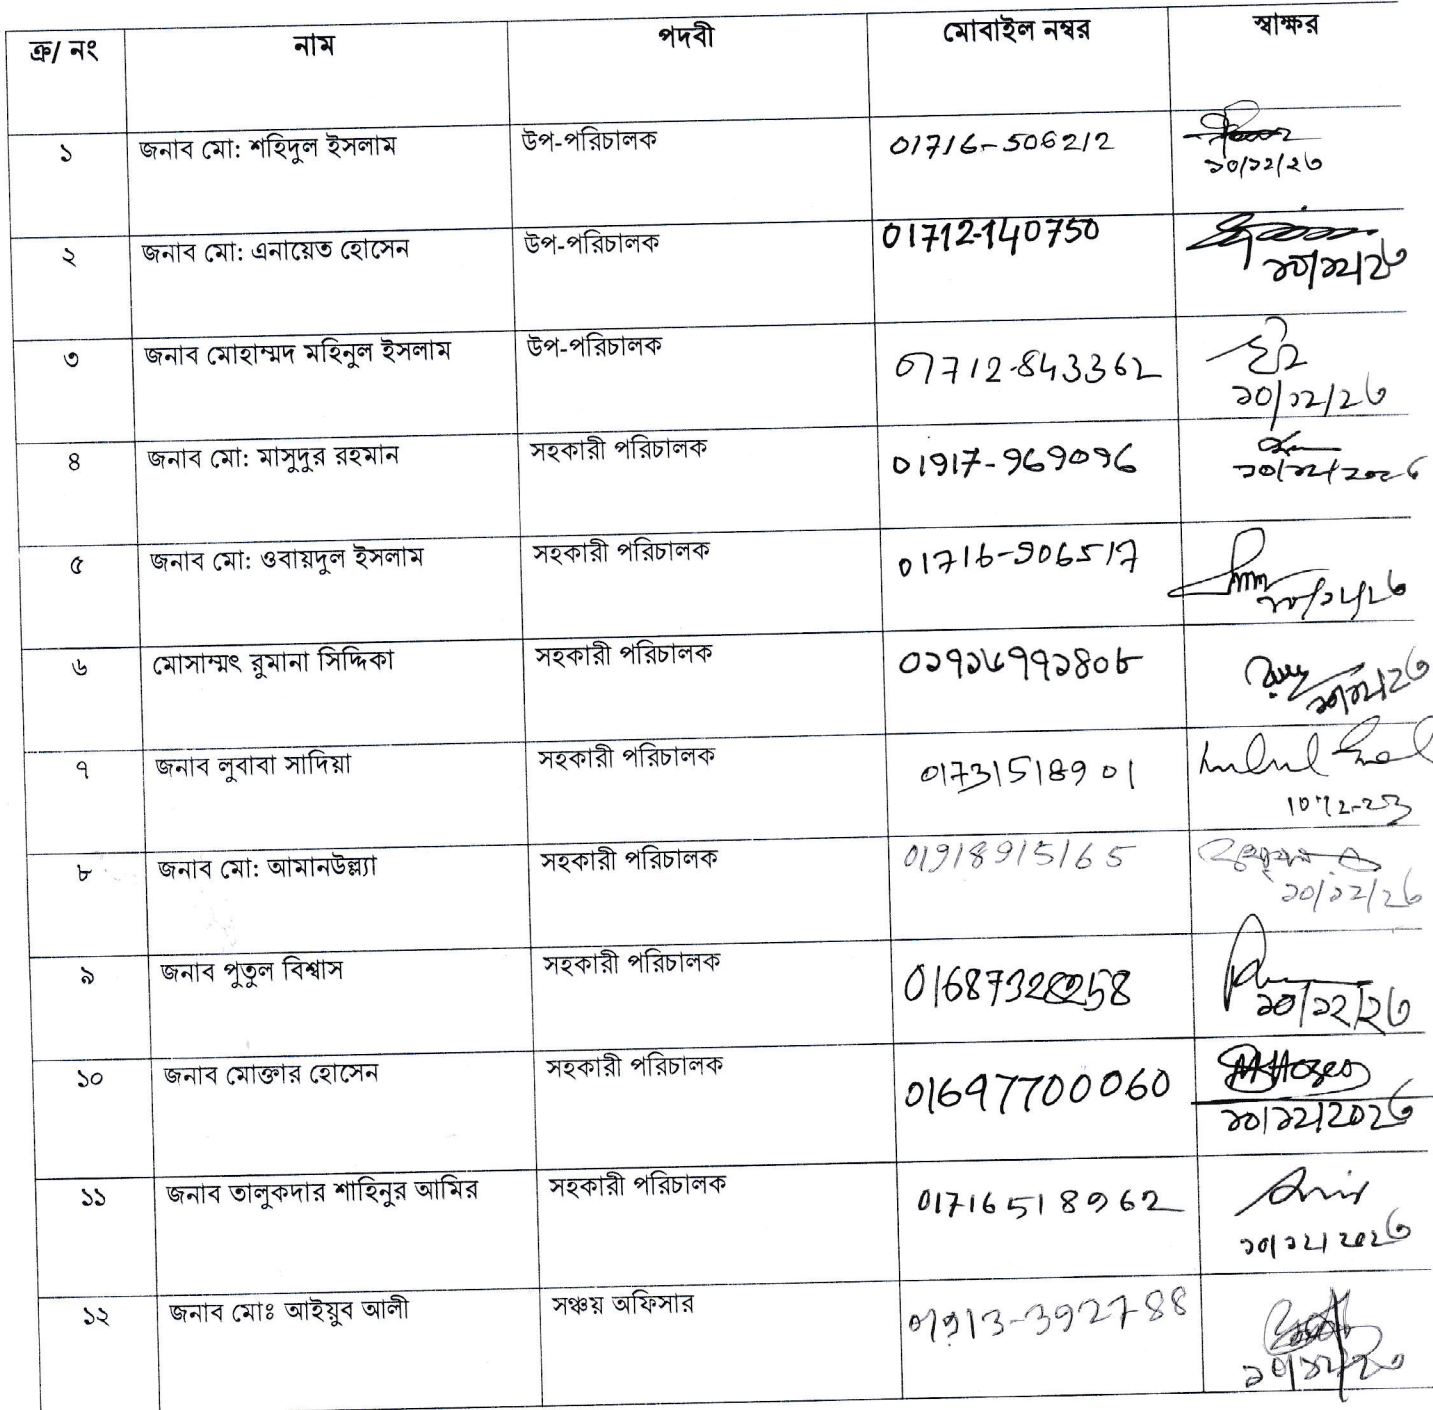 ক্র/ নং নাম পদবী মোবাইল নম্বর স্বাক্ষর
১ জনাব মো: শহিদুল ইসলাম উপ-পরিচালক 01716-506212
১০/১২/২৩
২ জনাব মো: এনায়েত হোসেন উপ-পরিচালক 01712-140750
১০/১২/২৩
৩ জনাব মোহাম্মদ মহিনুল ইসলাম উপ-পরিচালক 01712-843362
১০/১২/২৩
৪ জনাব মো: মাসুদুর রহমান সহকারী পরিচালক 01917-969096
৫ জনাব মো: ওবায়দুল ইসলাম সহকারী পরিচালক 01716-906517
৬ মোসাম্মৎ রুমানা সিদ্দিকা সহকারী পরিচালক ০১৭১৬৭৭১৪০৮
১০/১২/২৩
৭ জনাব লুবাবা সাদিয়া সহকারী পরিচালক 01731518901
10-12-23
৮ জনাব মো: আমানউল্ল্যা সহকারী পরিচালক 01918915165
১০/১২/২৩
৯ জনাব পুতুল বিশ্বাস সহকারী পরিচালক 01687328258
১০/১২/২৩
১০ জনাব মোক্তার হোসেন সহকারী পরিচালক 01697700060
১০/১২/২০২৩
১১ জনাব তালুকদার শাহিনুর আমির সহকারী পরিচালক 01716518962
১০/১২/২০২৩
১২ জনাব মোঃ আইয়ুব আলী সঞ্চয় অফিসার 01913-392788
১০/১২/২৩